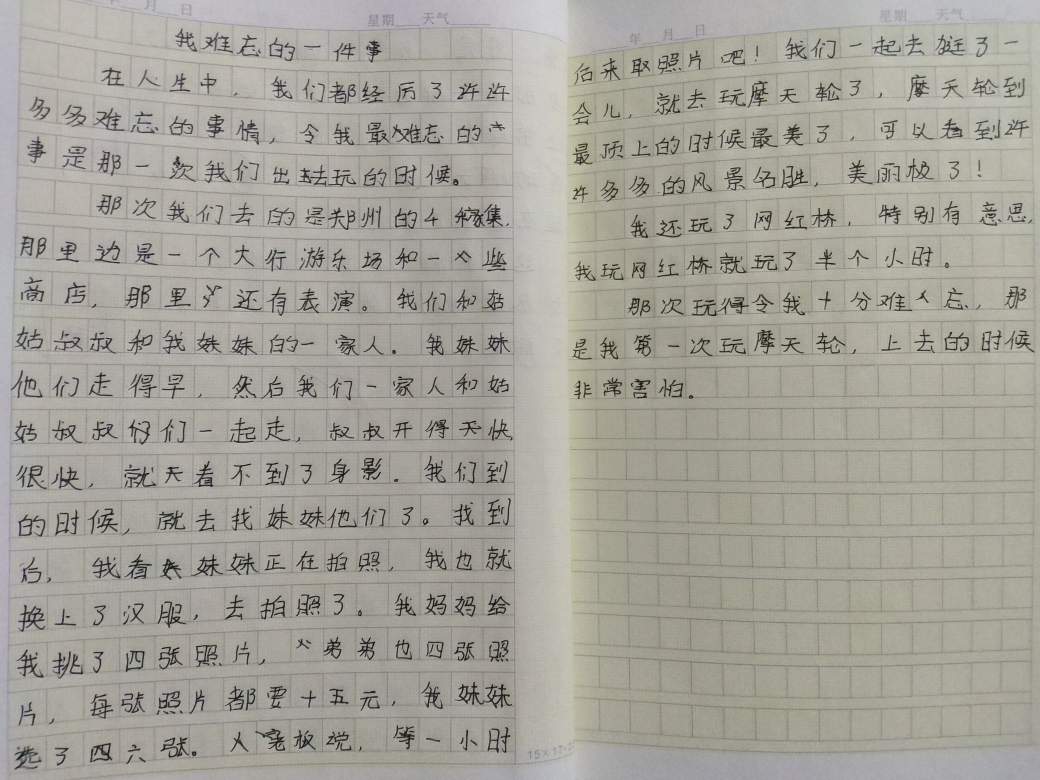 年 月 日
星期 天气
我难忘的一件事
在人生中，我们都经历了许许
多多难忘的事情，令我最难忘的
事是那一次我们出去玩的时候。
那次我们去的是郑州的4 集，
那里边是一个大行游乐场和一些
商店，那里还有表演。我们和姑
姑叔叔和我妹妹的一家人。我妹妹
他们走得早，然后我们一家人和姑
姑叔叔们一起走，叔叔开得快，
很快，就看不到了身影。我们到
的时候，就去找妹妹他们了。找到
后，我看妹妹正在拍照，我也就
换上了汉服，去拍照了。我妈妈给
我挑了四张照片，弟弟也四张照
片，每张照片都要十五元，我妹妹
选了四六张。老板说，等一小时
15×17=255
年 月 日
星期 天气
后来取照片吧！我们一起去逛了一
会儿，就去玩摩天轮了，摩天轮到
最顶上的时候最美了，可以看到许
许多多的风景名胜，美丽极了！
我还玩了网红桥，特别有意思，
我玩网红桥就玩了半个小时。
那次玩得令我十分难忘，那
是我第一次玩摩天轮，上去的时候
非常害怕。